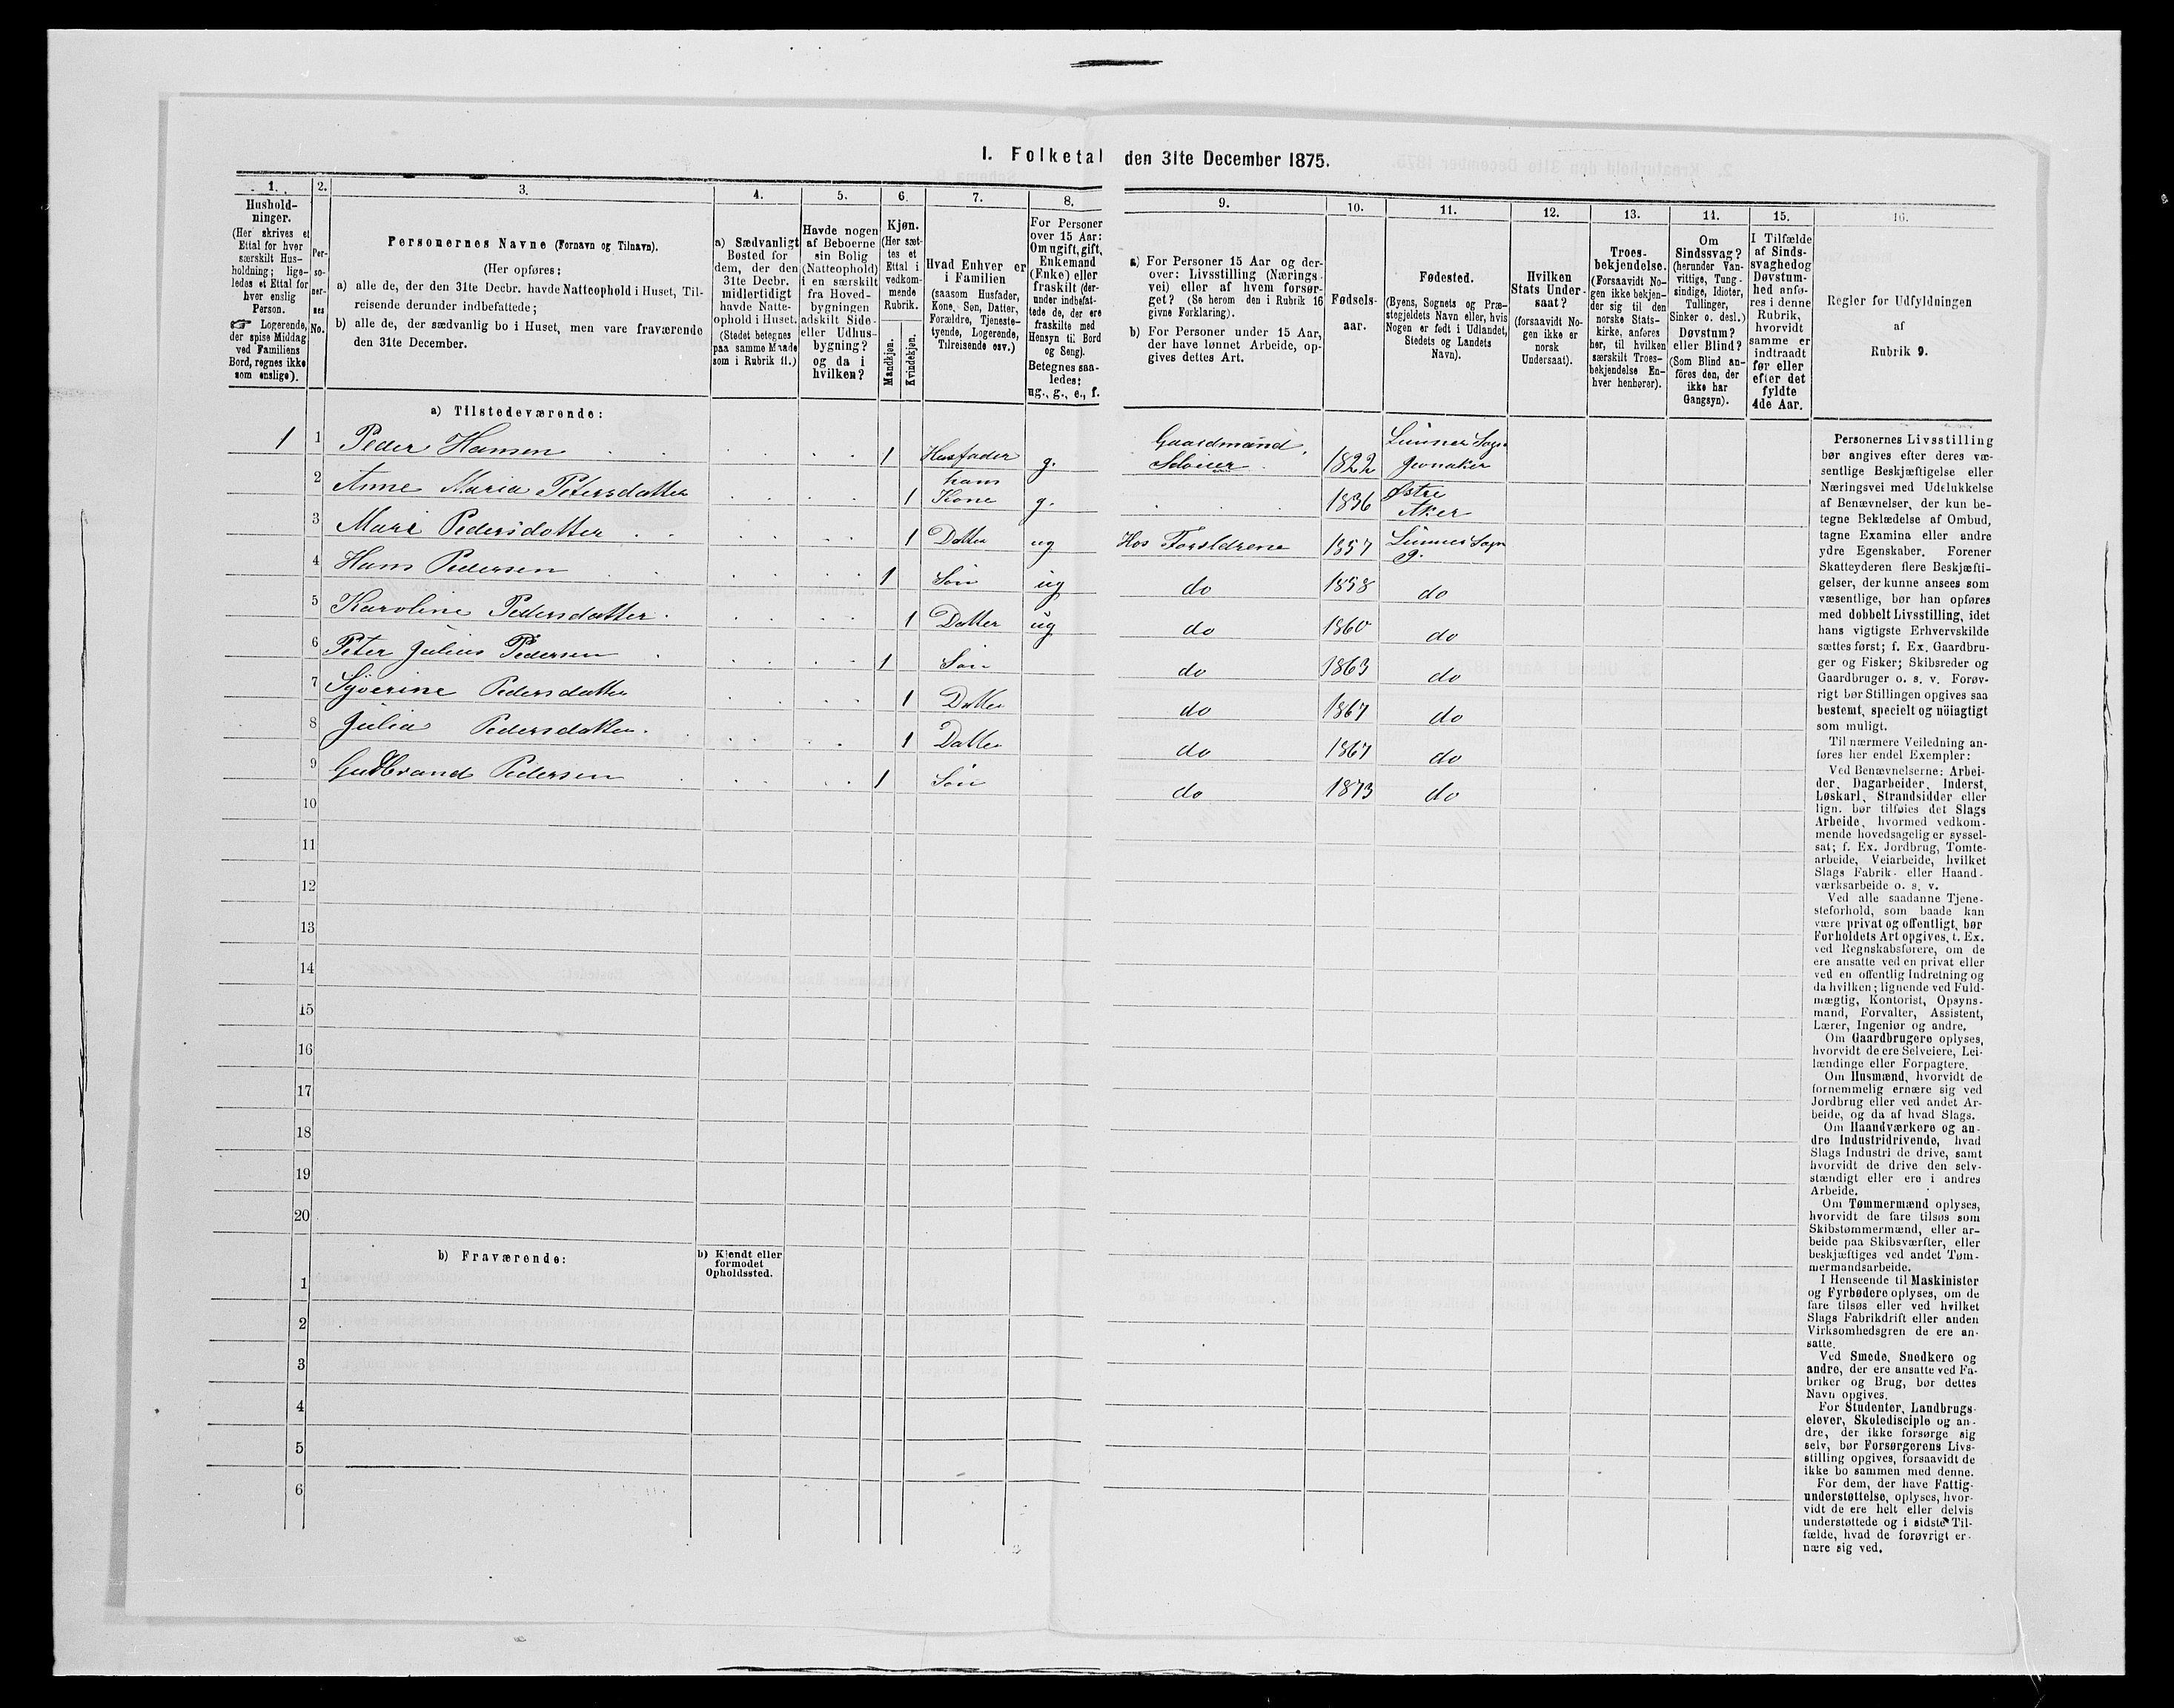 I. Folketal den 31te December 1875.
1.
2.
3.
4.
5.
6.
7.
8.
9.
10.
11.
12.
13.
14.
15.
16.
Hushold-
ninger.
(Her skrives et
Ettal for hver
særskilt Hus-
holdning; lige-
ledes et Ettal for
hver enslig
Person.
☞ Logerende,
der spise Middag
ved Familiens
Bord, regnes ikke
som enslige).
Per-
so-
ner-
nes
No.
Personernes Navne (Fornavn og Tilnavn).
(Her opføres:
a) alle de, der den 31te Decbr. havde Natteophold i Huset, Til-
reisende derunder indbefattede;
b) alle de, der sædvanlig bo i Huset, men vare fraværende
den 31te December.
a) Sædvanligt
Bosted for
dem, der den
31te Decbr.
midlertidigt
havde Natte-
ophold i Huset.
(Stedet betegnes
paa samme Maade
som i Rubrik 11.)
Havde nogen
af Beboerne
sin Bolig
(Natteophold)
i en særskilt
fra Hoved-
bygningen
adskilt Side-
eller Udhus-
bygning?
og da i
hvilken?
Kjøn.
(Her sæt-
tes et
Ettal i
vedkom-
mende
Rubrik.
Mandkjøn.
Kvindekjøn.
Hvad Enhver er
i Familien
(saasom Husfader,
Kone, Søn, Datter,
Forældre, Tjeneste-
tyende, Logerende,
Tilreisende osv.)
For Personer
over 15 Aar:
Om ugift, gift,
Enkemand
(Enke) eller
fraskilt (der-
under indbefat-
tede de, der ere
fraskilte med
Hensyn til Bord
og Seng).
Betegnes saa-
ledes:
ug., g., e., f.
a) For Personer 15 Aar og der-
over: Livsstilling (Nærings-
vei) eller af hvem forsør-
get? (Se herom den i Rubrik 16
givne Forklaring).
b) For Personer under 15 Aar,
der have lønnet Arbeide, op-
gives dettes Art.
Fødsels-
aar.
Fødested.
(Byens, Sognets og Præ-
stegjeldets Navn eller, hvis
Nogen er født i Udlandet,
Stedets og Landets
Navn).
Hvilken
Stats Under-
saat?
(forsaavidt No-
gen ikke er
norsk
Undersaat).
Troes-
bekjendelse.
(Forsaavidt No-
gen ikke bekjen-
der sig til den
norske Stats-
kirke, anføres
her, til hvilken
særskilt Troes-
bekjendelse En-
hver henhører).
Om
Sindssvag?
(herunder Van-
vittige, Tung-
sindige, Idioter,
Tullinger,
Sinker o. desl.)
Døvstum?
eller Blind?
(Som Blind an-
föres den, der
ikke har
Gangsyn).
I Tilfælde
af Sinds-
svaghed og
Døvstum-
hed anfø-
res i denne
Rubrik,
hvorvidt
samme er
indtraadt
før eller
efter det
fyldte
4de Aar.
Regler for Udfyldningen
af
Rubrik 9.
a) Tilstedeværende:
1 1 Peder Hansen 1 Husfader g. Gaardmand, Selveier 1822 Lunner Sogn Jevnaker
2 Anne Maria Petersdatter 1 hans Kone g. 1836 Østre Aker
3 Mari Pedersdatter 1 Datter ug Hos Forældrene 1857 Lunner Sogn J.
4 Hans Pedersen 1 Søn ug do 1858 do
5 Karoline Pedersdatter 1 Datter ug do 1860 do
6 Peter Julius Pedersen 1 Søn do 1863 do
7 Syverine Pedersdatter 1 Datter do 1867 do
8 Julia Pedersdatter 1 Datter do 1867 do
9 Gudbrand Pedersen 1 Søn do 1873 do
10
11
12
13
14
15
16
17
18
19
20
b) Fraværende:
b) Kjendt eller
formodet
Opholdssted.
1
2
3
4
5
6
Personernes Livsstilling
bør angives efter deres væ-
sentlige Beskjæftigelse eller
Næringsvei med Udelukkelse
af Benævnelser, der kun be-
tegne Beklædelse af Ombud,
tagne Examina eller andre
ydre Egenskaber. Forener
Skatteyderen flere Beskjæfti-
gelser, der kunne ansees som
væsentlige, bør han opføres
med dobbelt Livsstilling, idet
hans vigtigste Erhvervskilde
sættes først; f. Ex. Gaardbru-
ger og Fisker; Skibsreder og
Gaardbruger o. s. v. Forøv-
rigt bør Stillingen opgives saa
bestemt, specielt og nöiagtigt
som muligt.
Til nærmere Veiledning an-
føres her endel Exempler:
Ved Benævnelserne: Arbei-
der, Dagarbeider, Inderst,
Løskarl, Strandsidder eller
lign. bør tilføies det Slags
Arbeide, hvormed vedkom-
mende hovedsagelig er syssel-
sat; f. Ex. Jordbrug, Tomte-
arbeide, Veiarbeide, hvilket
Slags Fabrik- eller Haand-
værksarbeide o. s. v.
Ved alle saadanne Tjene-
steforhold, som baade kan
være privat og offentligt, bør
Forholdets Art opgives, t. Ex.
ved Regnskabsførere, om de
ere ansatte ved en privat eller
ved en offentlig Indretning og
da hvilken; lignende ved Fuld-
mægtig, Kontorist, Opsyns-
mand, Forvalter, Assistent,
Lærer, Ingeniør og andre.
Om Gaardbrugere oplyses,
hvorvidt de ere Selveiere, Lei-
lændinge eller Forpagtere.
Om Husmænd, hvorvidt de
fornemmelig ernære sig ved
Jordbrug eller ved andet Ar-
beide, og da af hvad Slags.
Om Haandværkere og an-
dre Industridrivende, hvad
Slags Industri de drive, samt
hvorvidt de drive den selv-
stændigt eller ere i andres
Arbeide.
Om Tømmermænd oplyses,
hvorvidt de fare tilsøs som
Skibstømmermænd, eller ar-
beide paa Skibsværfter, eller
beskjæftiges ved andet Tøm-
mermandsarbeide.
I Henseende til Maskinister
og Fyrbødere oplyses, om de
fare tilsøs eller ved hvilket
Slags Fabrikdrift eller anden
Virksomhedsgren de ere an-
satte.
Ved Smede, Snedkere og
andre, der ere ansatte ved Fa-
briker og Brug, bør dettes
Navn opgives.
For Studenter, Landbrugs-
elever, Skoledisciple og an-
dre, der ikke forsørge sig
selv, bør Forsørgerens Livs-
stilling opgives, forsaavidt de
ikke bo sammen med denne.
For dem, der have Fattig-
understøttelse, oplyses, hvor-
vidt de ere helt eller delvis
understøttede og i sidste Til-
fælde, hvad de forøvrigt er-
nære sig ved.